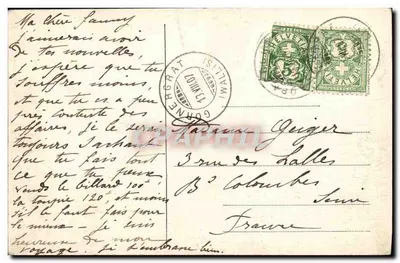 Ma chère Fanny
j'aimerais avoir
de tes nouvelles,
j'espère que tu
souffres moins,
et que tu es a peu
près contente des
affaires, je le serai
toujours sachant
que tu fais tout
ce que tu peux
vends le billard 100f
la toupie 120f et moins
s'il le faut fais pour
le mieux - je suis
heureuse de mon
voyage. Je t'embrasse bien.
GORNERGRAT
13.VIII.07
(VALLIS)
HELVETIA
HELVETIA
Madame Geiger
3 rue des Halles
Bs Colombes
Seine
France